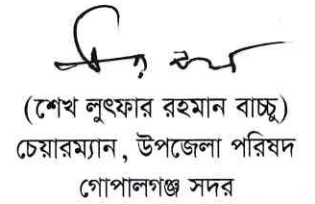 (শেখ লুৎফার রহমান বাচ্চু)
চেয়ারম্যান, উপজেলা পরিষদ
গোপালগঞ্জ সদর